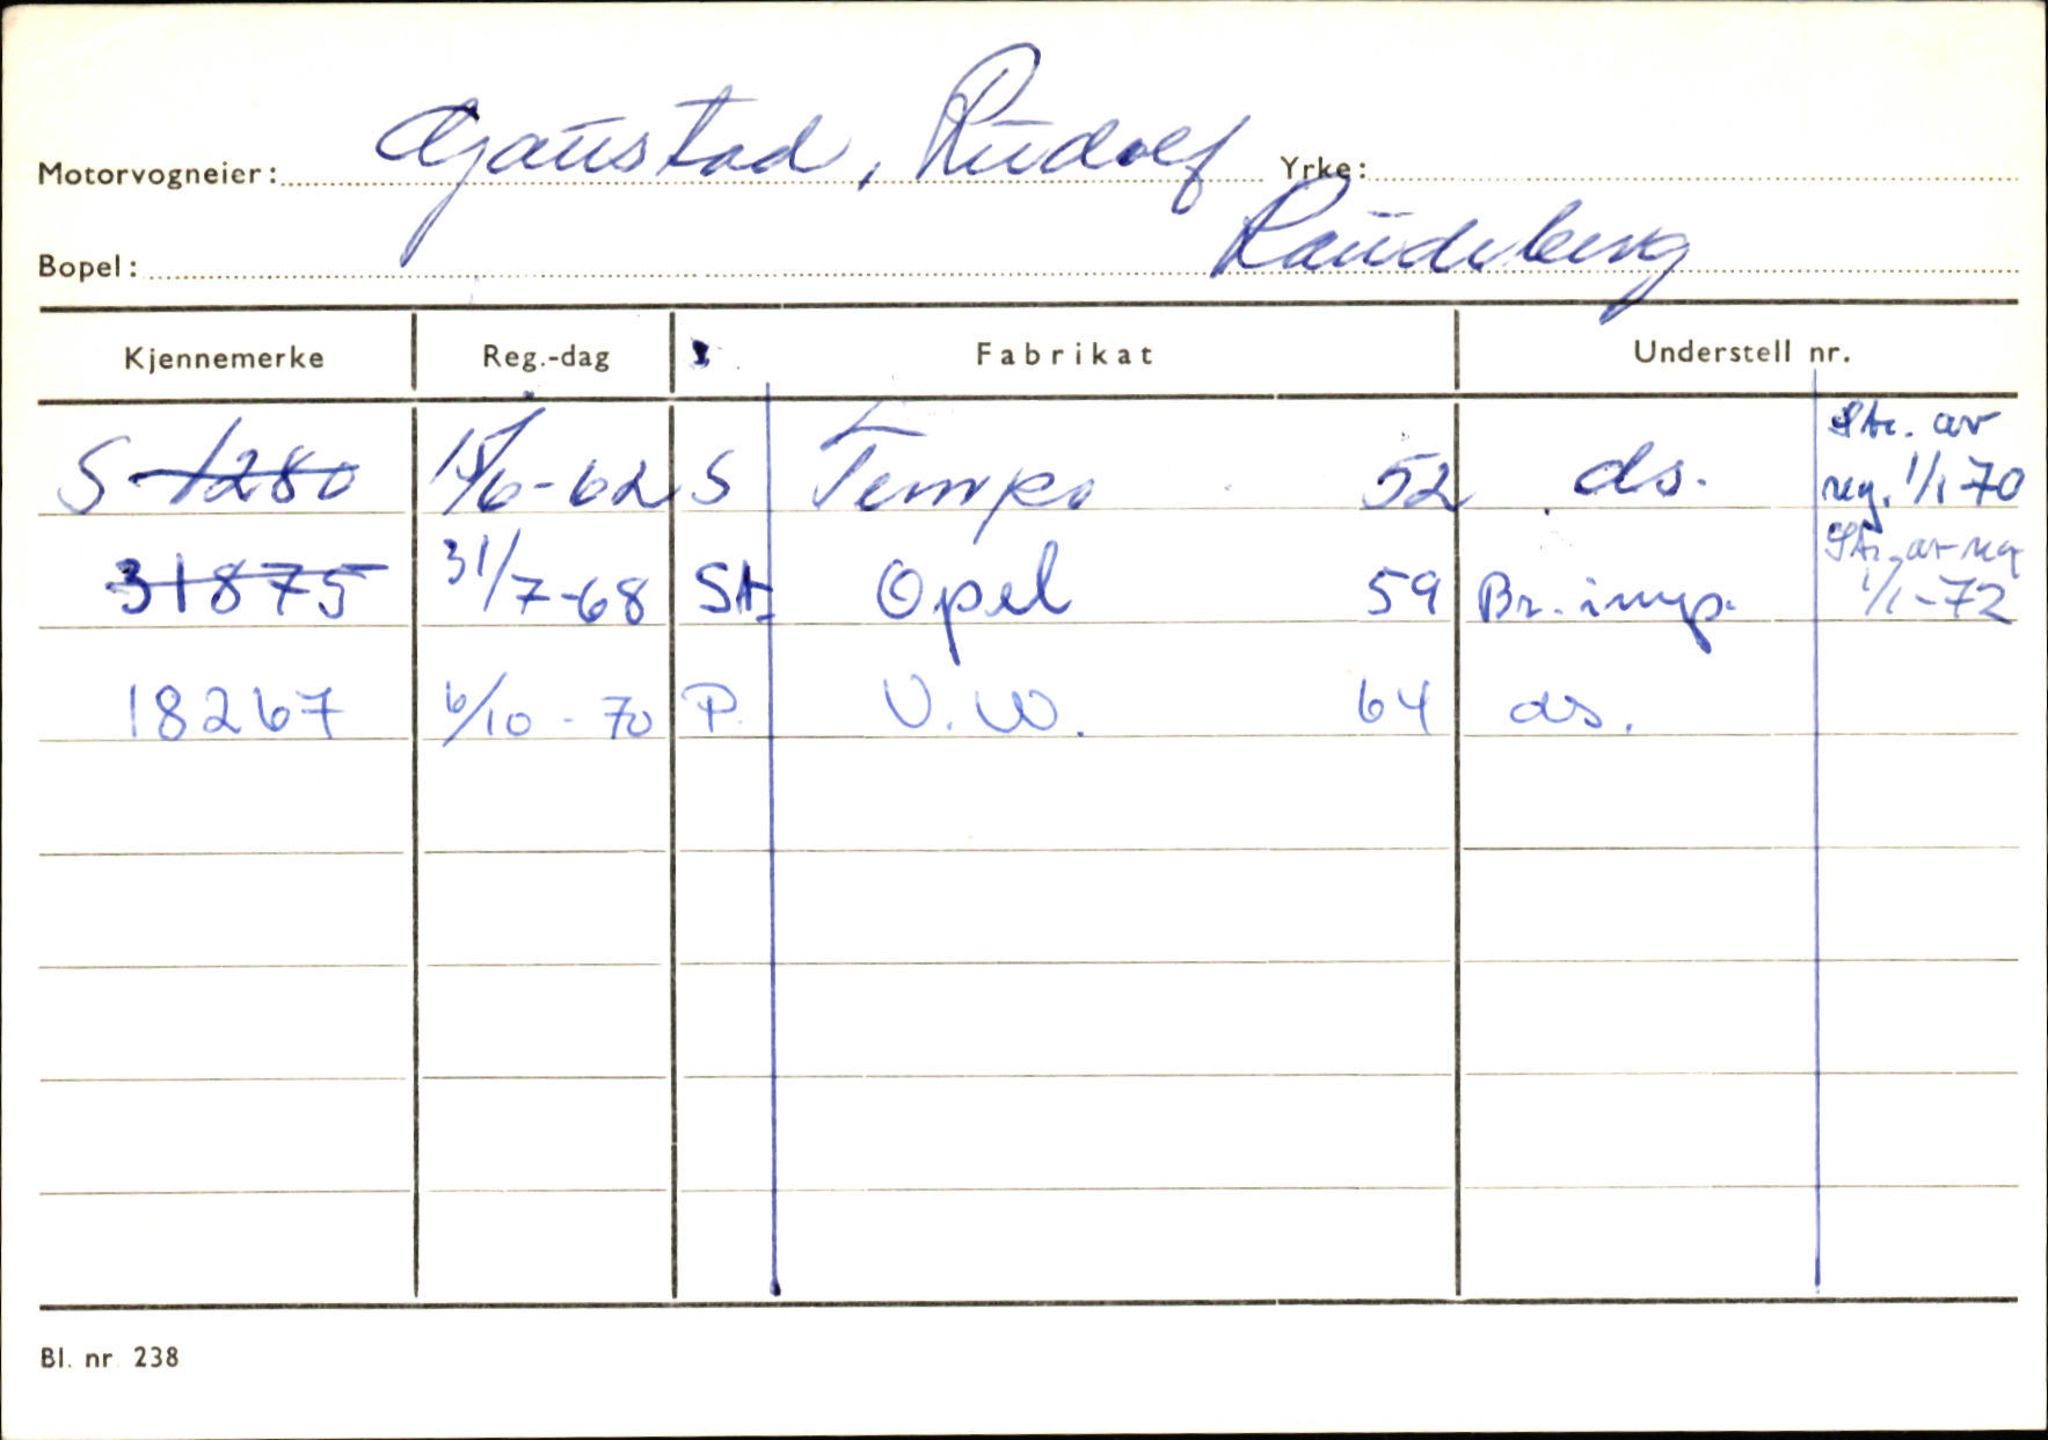 Motorvogneier: Gjaustad, Rudolf Yrke:
Bopel: Raudeberg
Kjennemerke Reg.-dag Fabrikat Understell nr.
S 1280 15/6-62 S Tempo 52 ds. Str. av reg. 1/1 70
31875 31/7-68 St. Opel 59 Br. imp. Str. av reg 1/1-72
18267 6/10-70 P. V.W. 64 ds.
Bl. nr 238